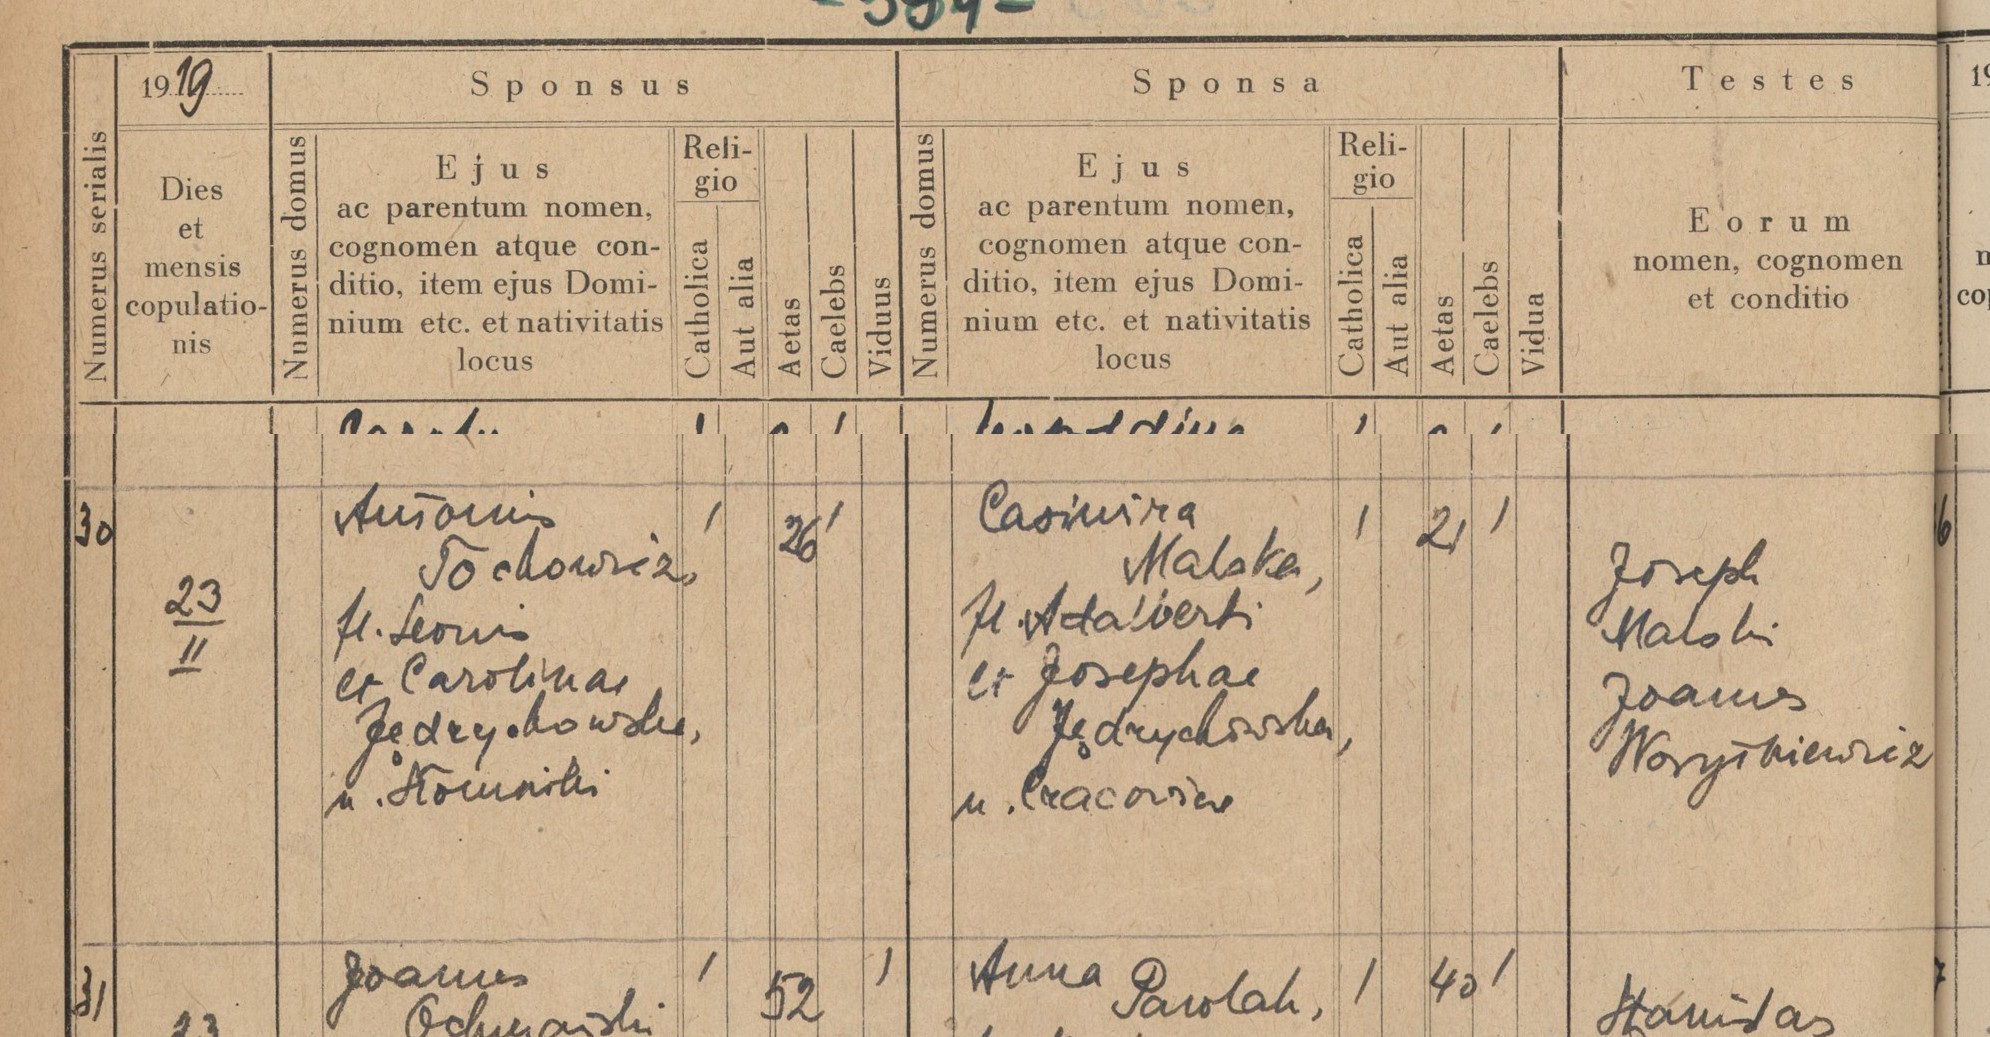 -394-
1919
Sponsus
Sponsa
Testes
Numerus serialis
Dies
et
mensis
copulatio-
nis
Numerus domus
Ejus
ac parentum nomen,
cognomen atque con-
ditio, item ejus Domi-
nium etc. et nativitatis
locus
Reli-
gio
Catholica
Aut alia
Aetas
Caelebs
Viduus
Numerus domus
Ejus
ac parentum nomen,
cognomen atque con-
ditio, item ejus Domi-
nium etc. et nativitatis
locus
Reli-
gio
Catholica
Aut alia
Aetas
Caelebs
Vidua
Eorum
nomen, cognomen
et conditio
30
23
II
Antonius
Tochowicz,
fl. Leonis
et Carolinae
Jędrychowska,
n. Słomniki
1 26 1
Casimira
Malska,
fl. Adalberti
et Josephae
Jędrychowska,
n. Cracoviae
1 21 1
Joseph
Malski
Joannes
Worytkiewicz
31
23
Joannes
1 52 1
Anna Parolah,
1 40 1
Stanislas